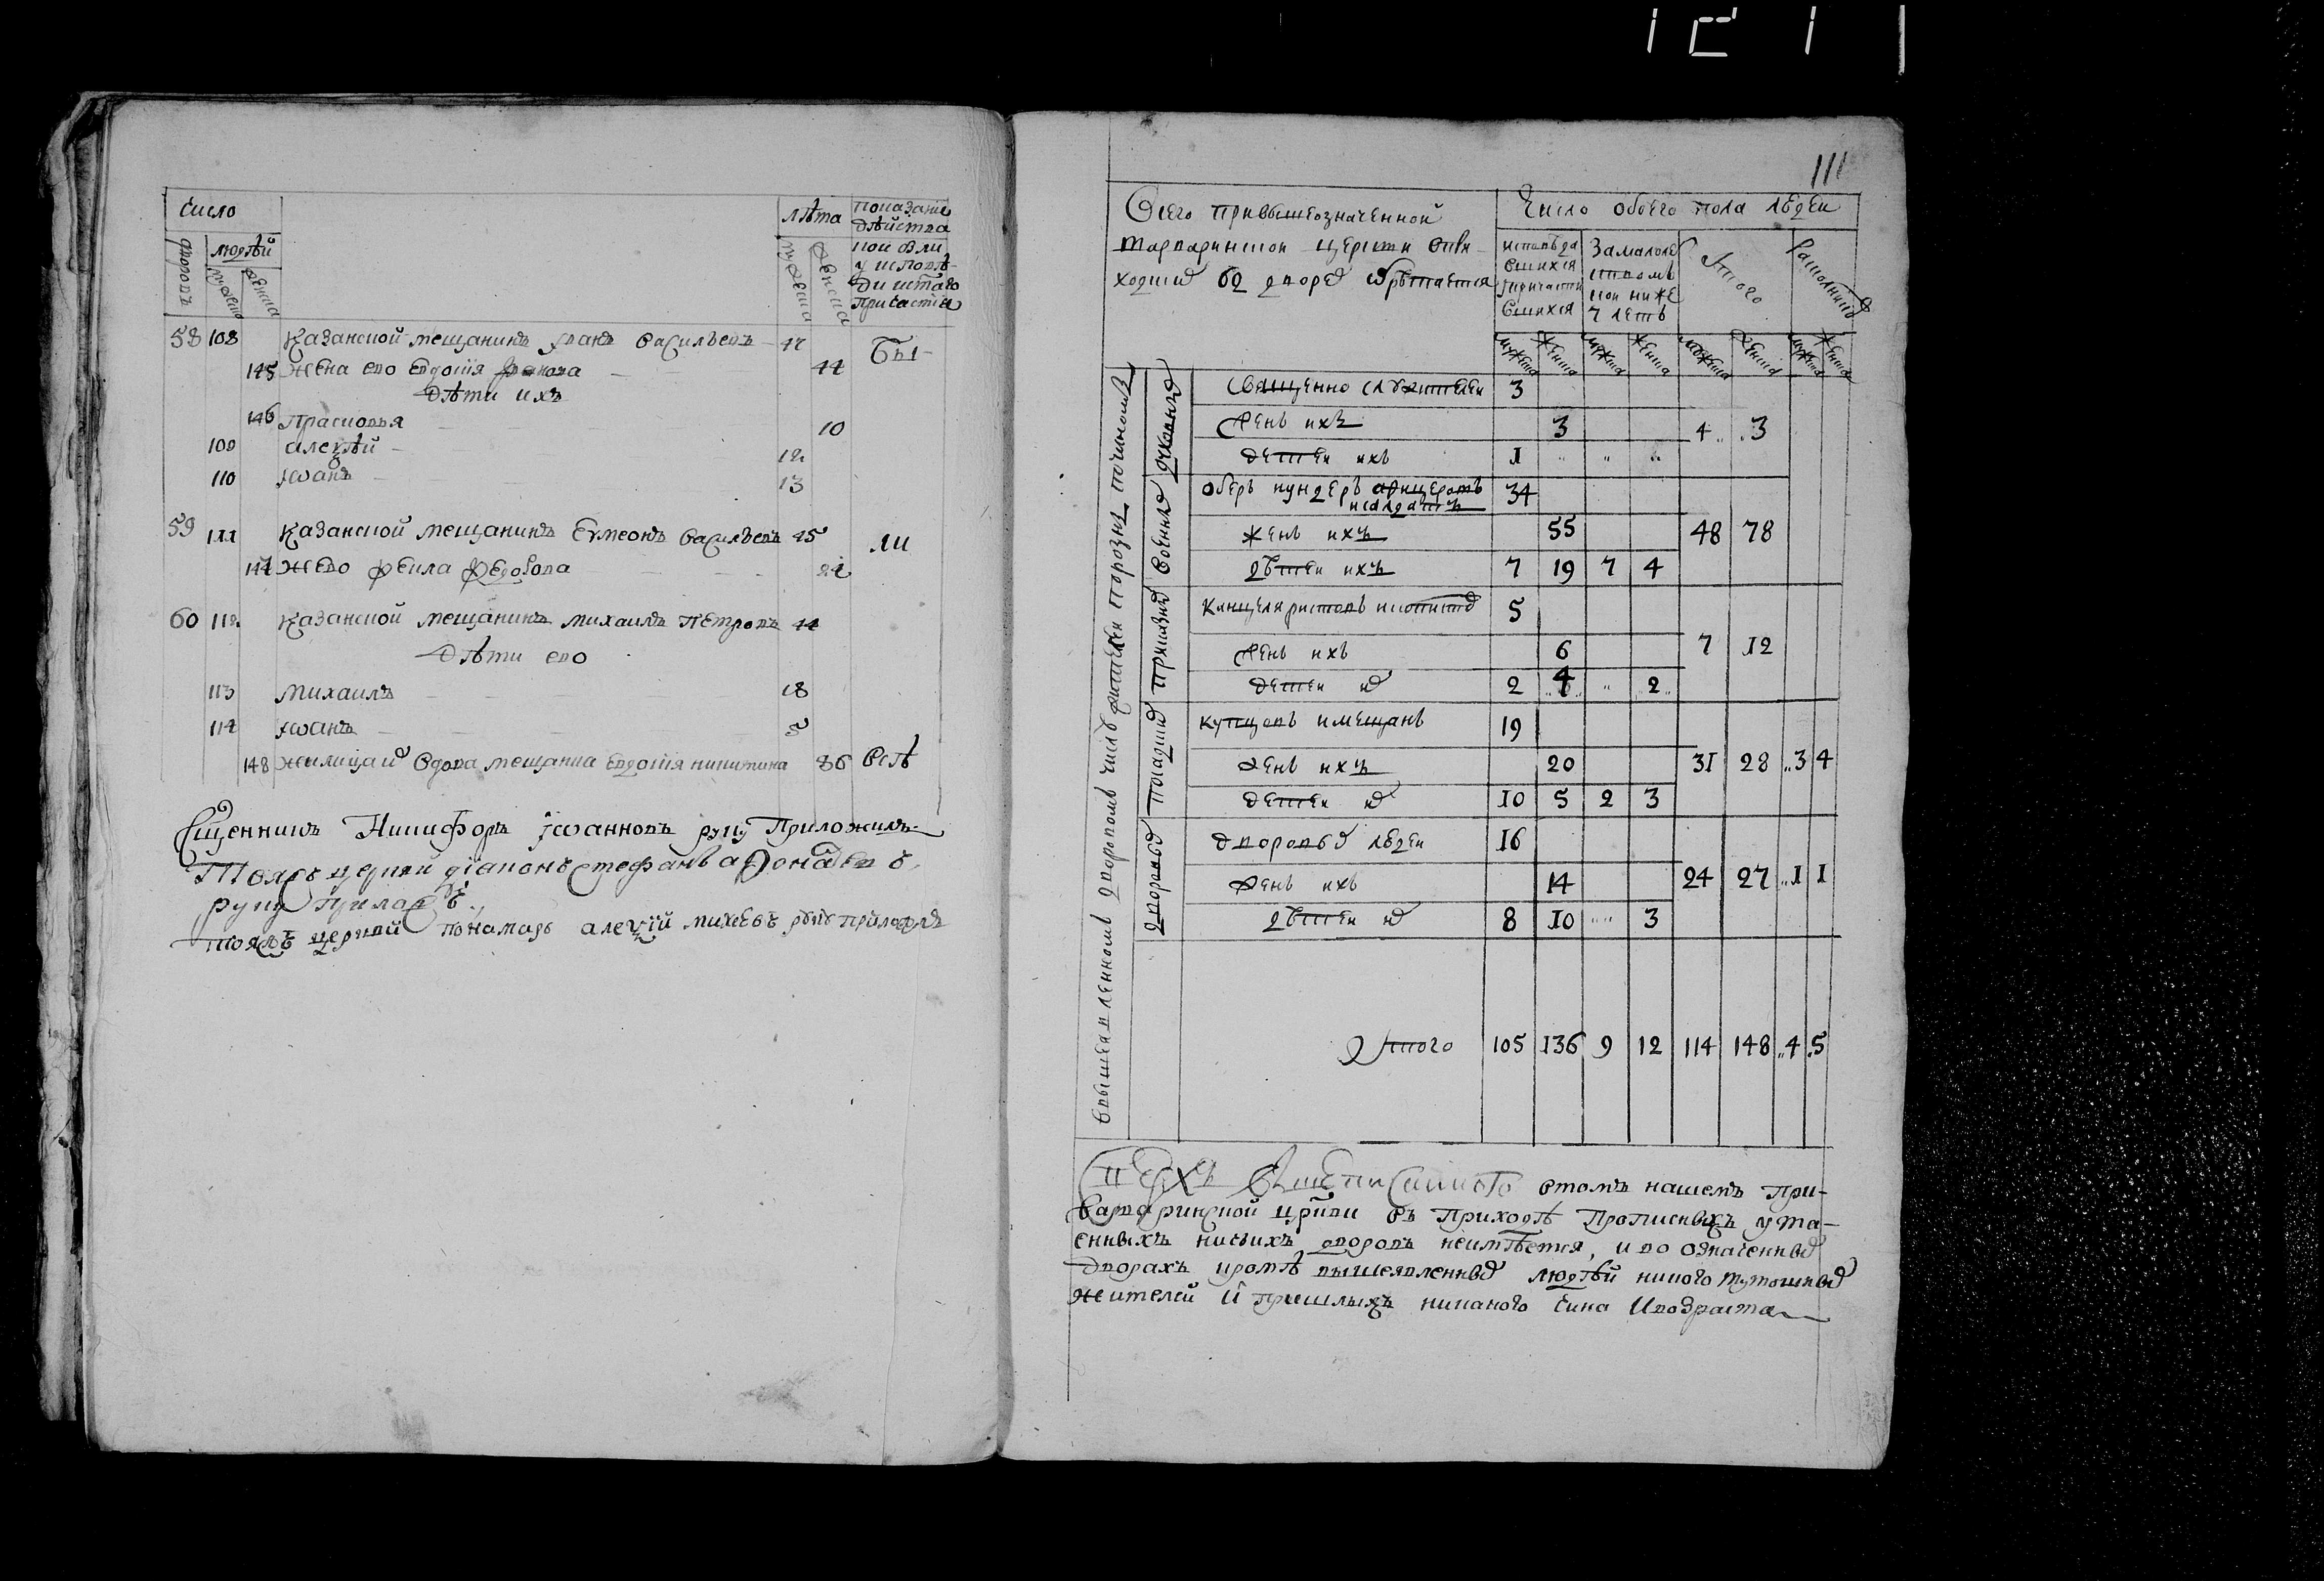 число
дворовъ
людѣй
мужеска
женска
лѣта
мужеска
женска
показание
дѣйства
кои были
у исповѣ-
ди истаго
причастия
58 108 Казанской мещанинъ Иванъ Васильевъ 47 Бы-
145 Жена ево Евдокiя 44
Дѣти ихъ
146 Прасковья 10
109 Алеѯѣй 12
110 Iѡанъ 13
59 111 Казанской мещанинъ Сѵмеонъ Васильевъ 45 ли
147 Ж ево Фекла Федорова
60 112 Казанской мещанинъ Михаилъ Петровъ 44
Дѣти ево
113 Михаилъ 18
114 Iѡанъ 5
148 Жилица и вдова мещанка Евдокiя Никитина 86 всѣ
Сщенникъ Никифоръ Iѡанновъ руку приложилъ
Тояжъ церкви дiаконъ Стефанъ
руку прилож
тояжъ церкви понамарь Алеѯiй Михеевъ руку приложилъ
111
Всего привышеозначенной
Варваринской церкви вни-
ходших 62 дворех обрѣтается
Число обоего пола людеи
исповѣда
вшихся
и причасти
вшихся
За малоле
тствомъ
кои ниже
7 летъ
Итого
Раскольник
мужеска женска мужеска женска мужеска женска мужеска женска
духовных
Священно служителеи 3
Женъ ихъ 3 4 3
детеи ихъ 1 " " "
военных
оберъ и ундеръ афицеровъ
и салдатъ 34
женъ ихъ 55 48 78
дѣтеи ихъ 7 19 7 4
приказных
Канцеляристовъ и копиистов 5
Женъ ихъ 6 7 12
детеи их 2 4 " 2
посадских
Купцовъ и мещанъ 19
женъ ихъ 20 31 28 3 4
детеи их 10 5 2 3
дворовых
Дворовых людеи 16
женъ ихъ 14 24 27 1 1
дѣтеи их 8 10 " 3
Итого 105 136 9 12 114 148 4 5
Сверхъ вышеписанного в томъ нашемъ при-
Варваринской цркви въ приходѣ прописныхъ ута-
енныхъ никоихъ дворовъ неимѣется, и во означенных
дворахъ кромѣ вышеявленных людѣй никого тутошних
жителей и пришлыхъ никакого чина и возраста